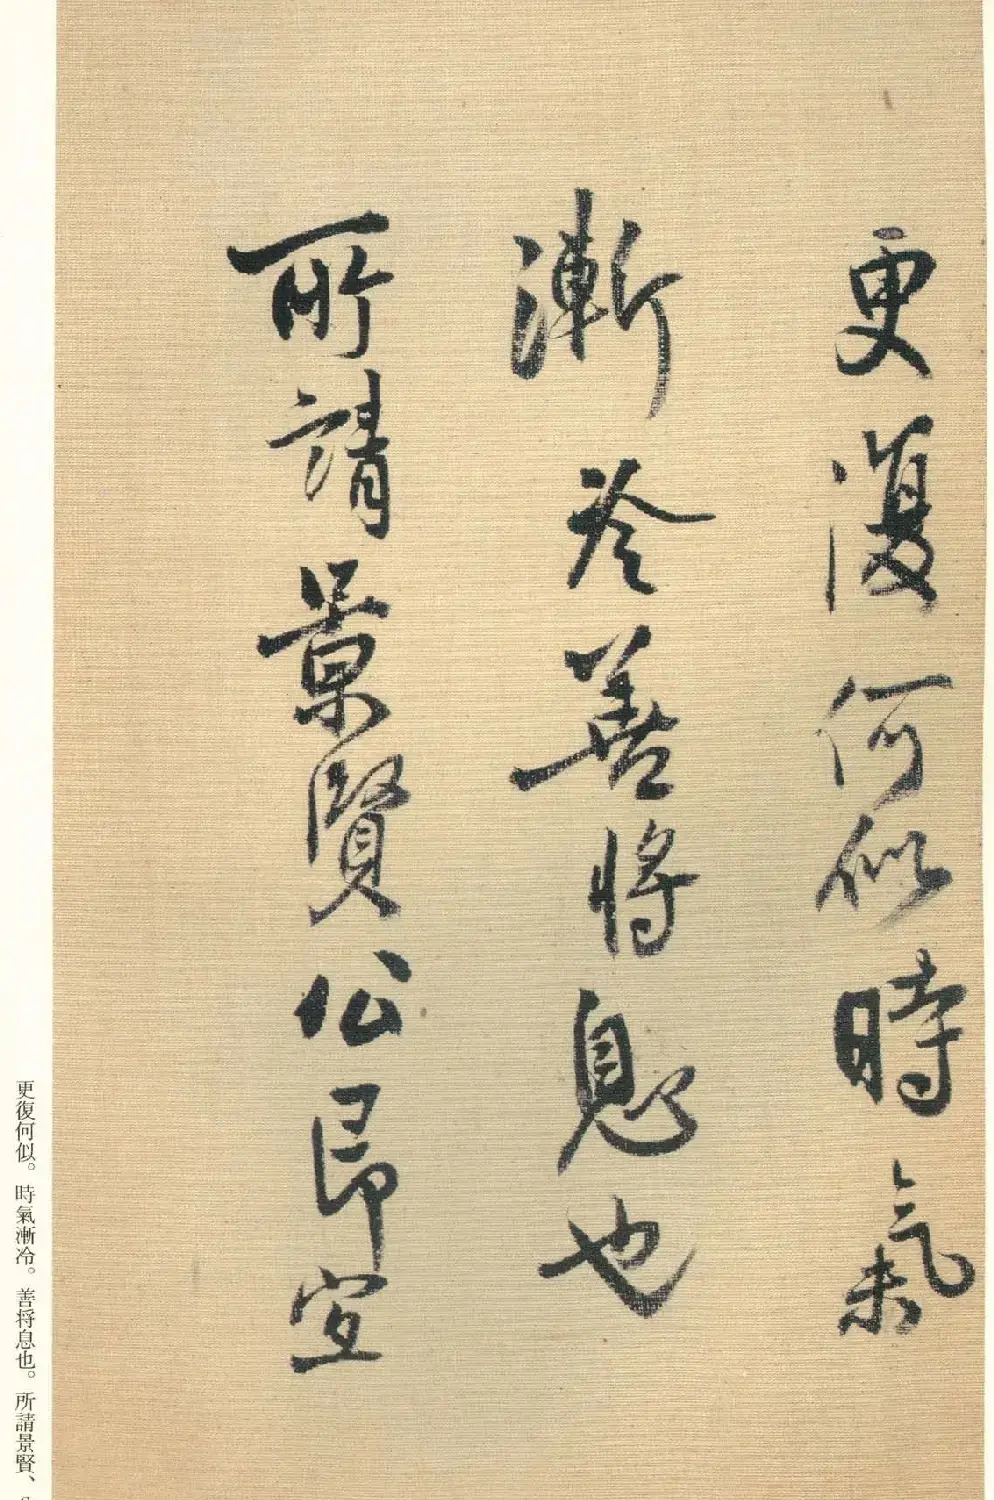 更復何似時氣
漸冷善將息也
所請景賢公即宜
更復何似。時氣漸冷。善将息也。所請景賢、